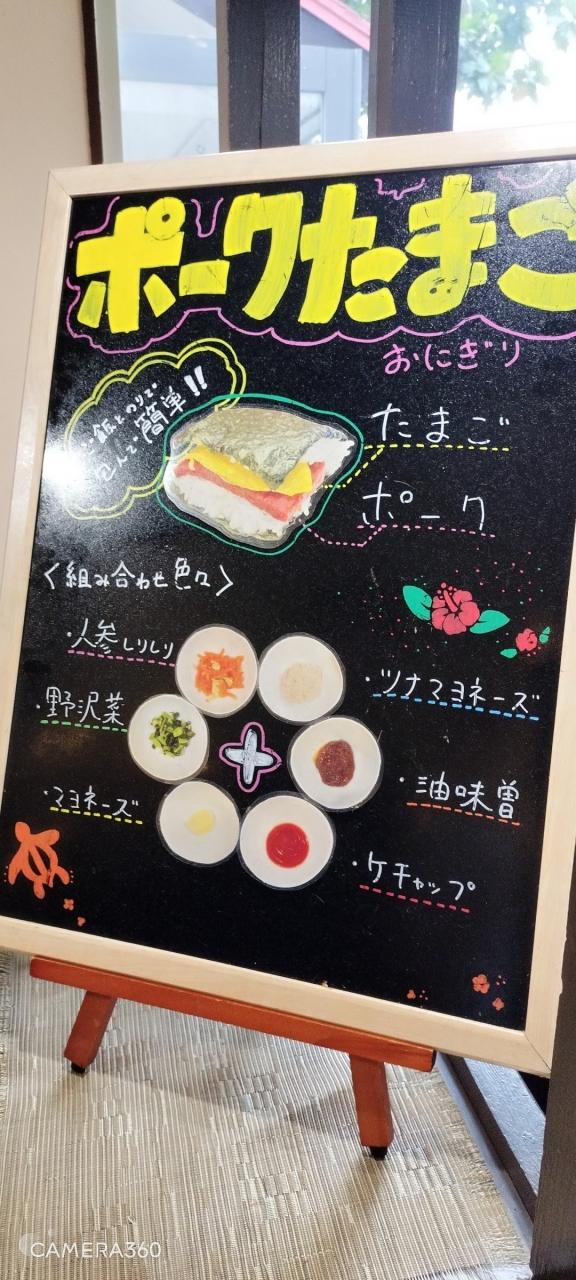 ポークたまご
おにぎり
ご飯とのりで
包んで簡単!!
たまご
ポーク
〈組み合わせ色々〉
・人参しりしり
・ツナマヨネーズ
・野沢菜
・油味曽
・マヨネーズ
・ケチャップ
CAMERA360